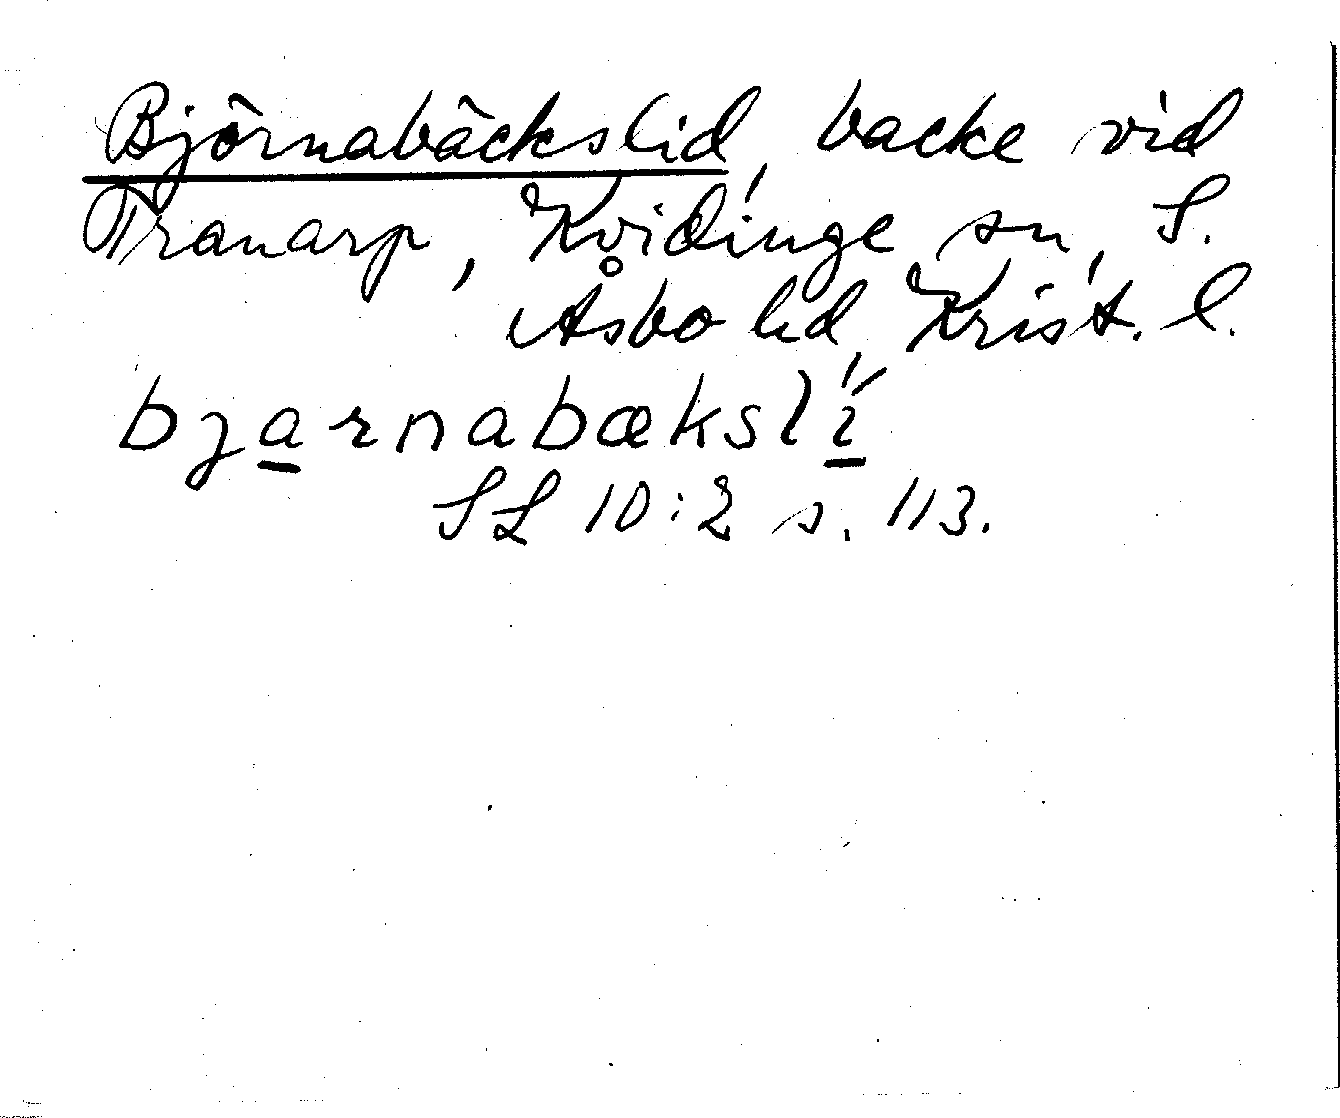 Björnabäckslid, backe vid
Tranarp, Kvidinge sn, S.
Åsbo hd, Krist. l.
bjarnabækslí
SL 10:2 s. 113.